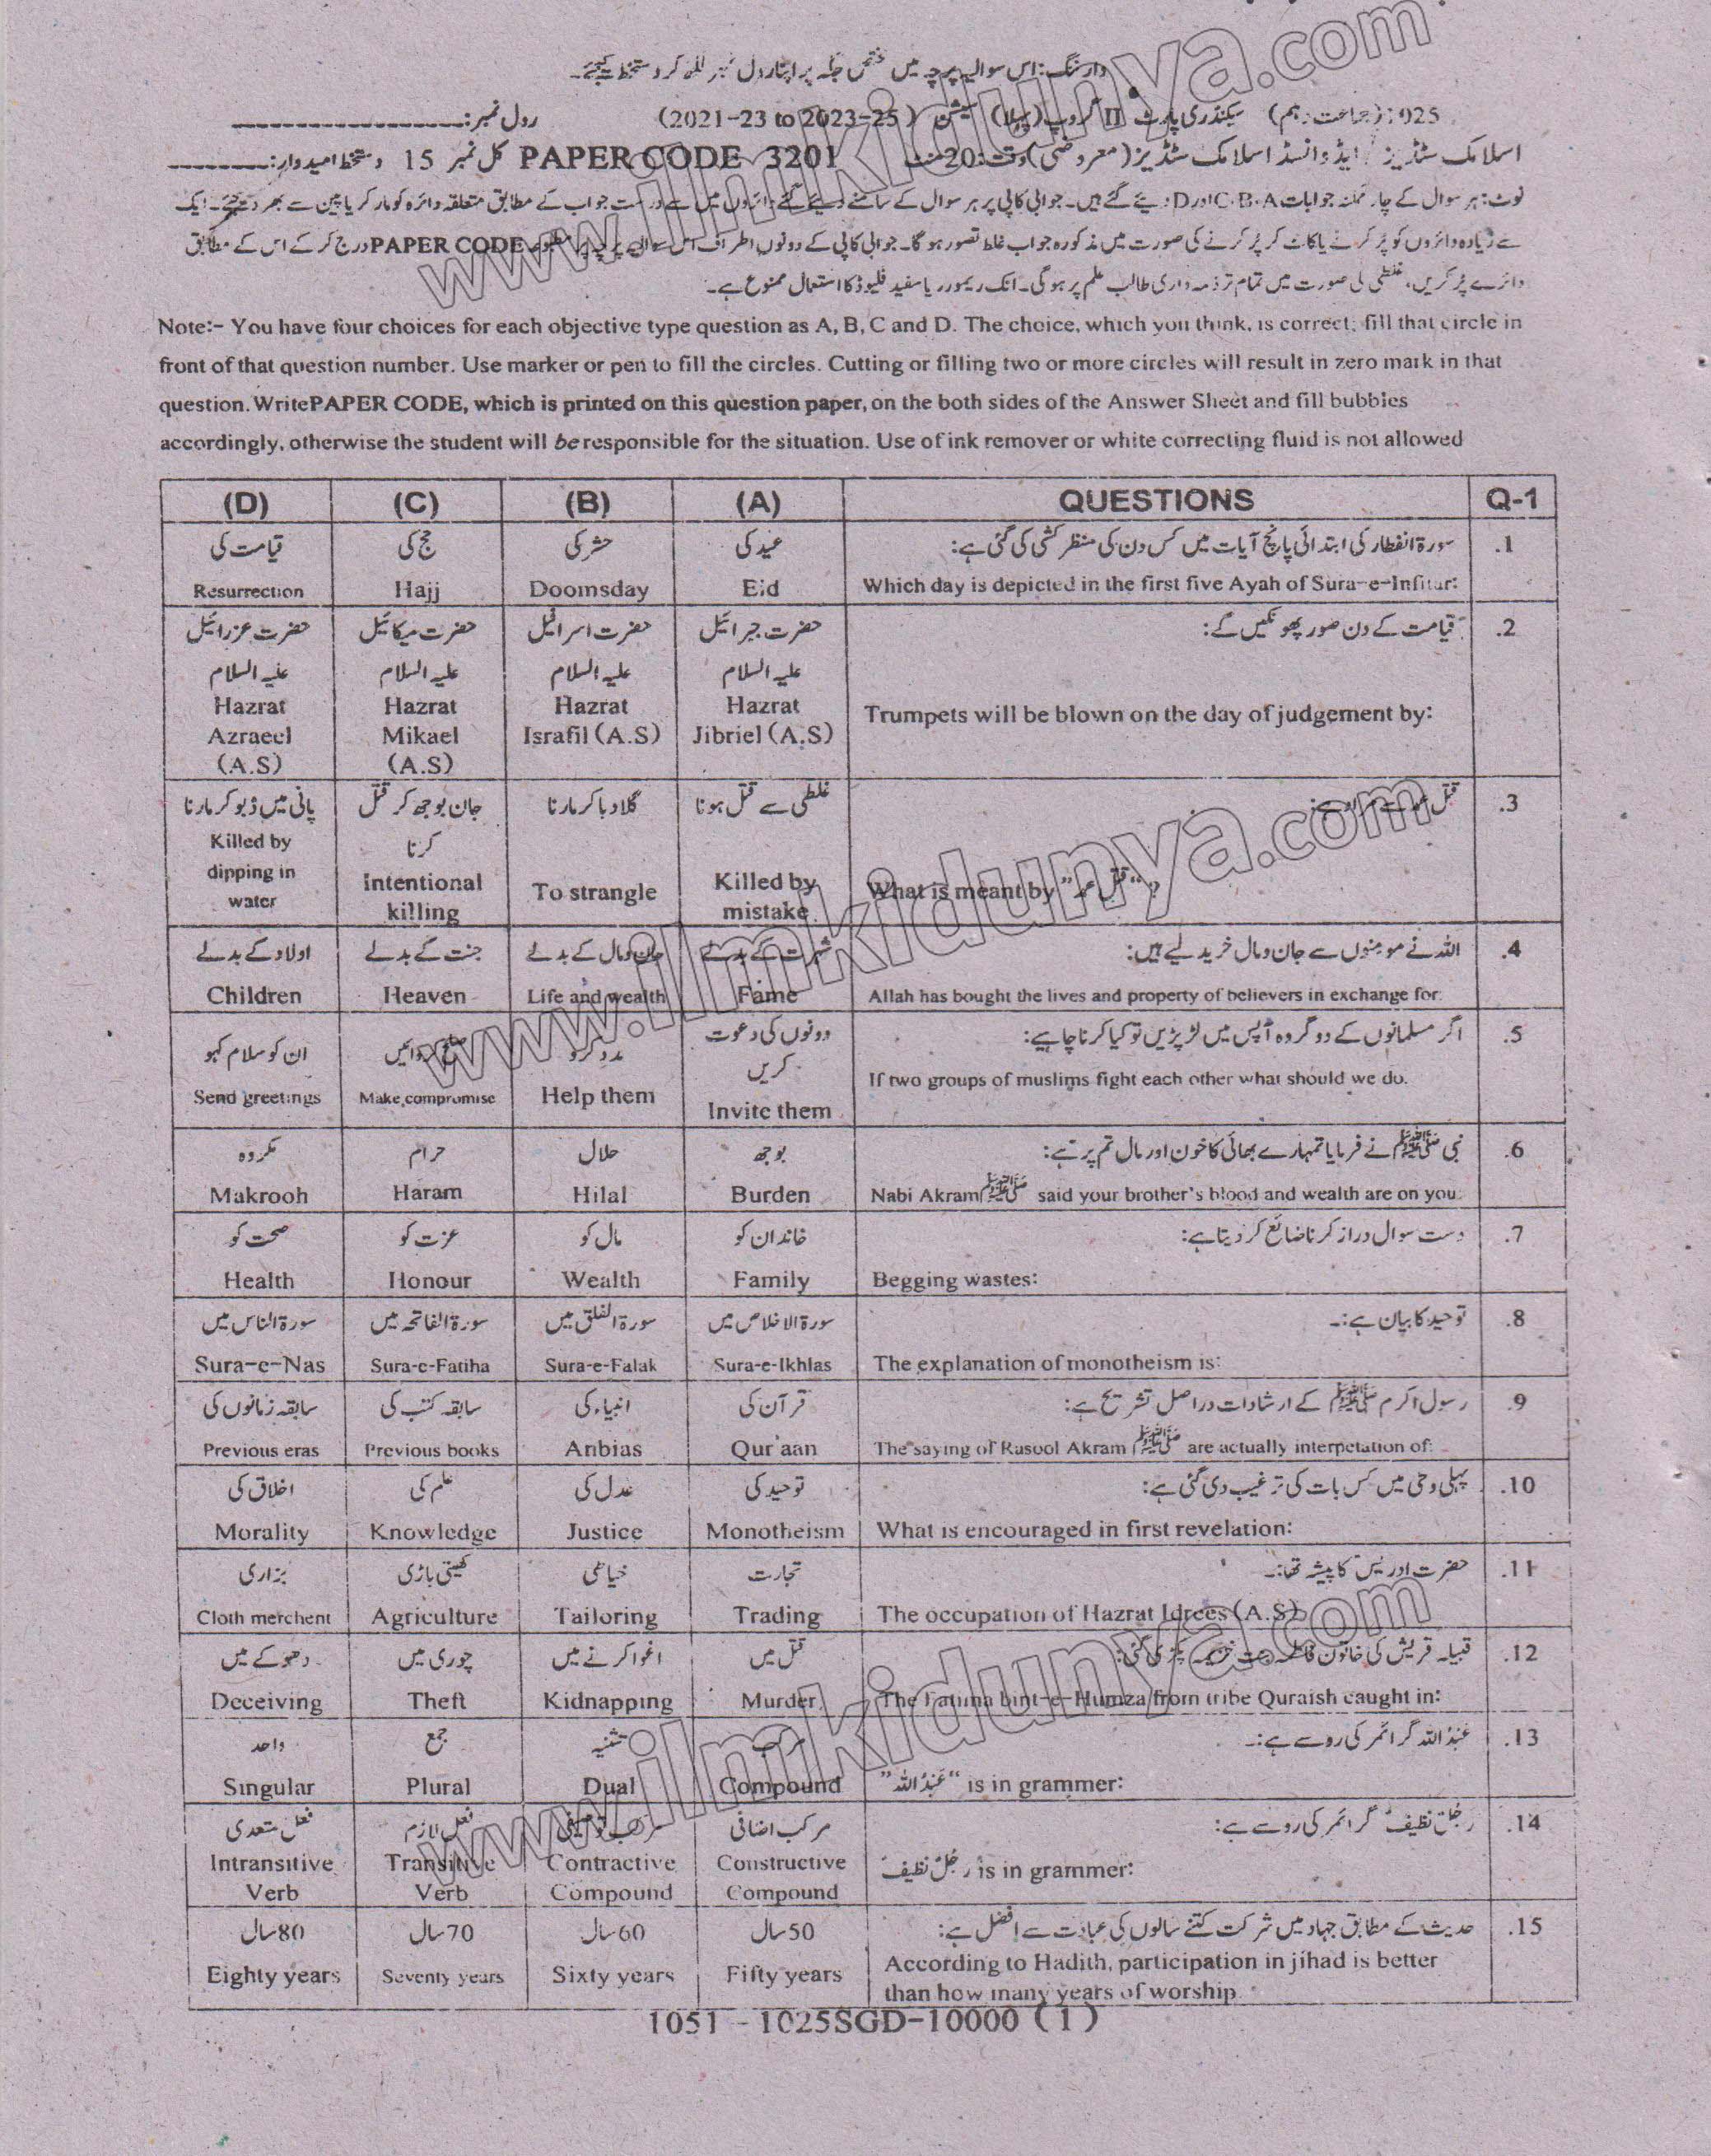 وارننگ: اس سوالیہ پرچہ میں مختص جگہ پر اپنا رول نمبر لکھ کر دستخط کیجئے۔
1025: (جماعت دہم) سیکنڈری پارٹ II گروپ (پہلا) سیشن (2021-23 to 2023-25) رول نمبر:
اسلامک سٹڈیز / ایڈوانسڈ اسلامک سٹڈیز (معروضی) وقت: 20 منٹ PAPER CODE 3201 کل نمبر 15 دستخط امیدوار:
نوٹ: ہر سوال کے چار ممکنہ جوابات C، B، A اور D دیئے گئے ہیں۔ جوابی کاپی پر ہر سوال کے سامنے دیئے گئے دائروں میں سے درست جواب کے مطابق متعلقہ دائرہ کو مارکر یا پین سے بھر دیجئے۔ ایک
سے زیادہ دائروں کو پُر کرنے یا کاٹ کر پُر کرنے کی صورت میں مذکورہ جواب غلط تصور ہوگا۔ جوابی کاپی کے دونوں اطراف اس سوالیہ پرچہ پر مطبوعہ PAPER CODE درج کر کے اس کے مطابق
دائرے پُر کریں، غلطی کی صورت میں تمام تر ذمہ داری طالب علم پر ہوگی۔ انک ریموور یا سفید فلیوڈ کا استعمال ممنوع ہے۔
Note:- You have four choices for each objective type question as A, B, C and D. The choice, which you think, is correct; fill that circle in
front of that question number. Use marker or pen to fill the circles. Cutting or filling two or more circles will result in zero mark in that
question. Write PAPER CODE, which is printed on this question paper, on the both sides of the Answer Sheet and fill bubbles
accordingly, otherwise the student will be responsible for the situation. Use of ink remover or white correcting fluid is not allowed
(D) (C) (B) (A) QUESTIONS Q-1
.1 سورۃ انفطار کی ابتدائی پانچ آیات میں کس دن کی منظر کشی کی گئی ہے: عید کی حشر کی حج کی قیامت کی
Resurrection Hajj Doomsday Eid Which day is depicted in the first five Ayah of Sura-e-Infitar:
.2 قیامت کے دن صور پھونکیں گے: حضرت جبرائیل حضرت اسرافیل حضرت میکائیل حضرت عزرائیل
علیہ السلام علیہ السلام علیہ السلام علیہ السلام
Hazrat Hazrat Hazrat Hazrat
Azraeel Mikael Israfil (A.S) Jibriel (A.S) Trumpets will be blown on the day of judgement by:
(A.S) (A.S)
.3 قتل غلطی سے قتل ہونا گلا دبا کر مارنا جان بوجھ کر قتل پانی میں ڈبو کر مارنا
کرنا
Killed by
dipping in
water
Intentional
killing
To strangle
Killed by
mistake
What is meant by "قتل عمد" ?
.4 اللہ نے مومنوں سے جان و مال خرید لیے ہیں: شہرت کے بدلے جان و مال کے بدلے جنت کے بدلے اولاد کے بدلے
Children Heaven Life and wealth Fame Allah has bought the lives and property of believers in exchange for:
.5 اگر مسلمانوں کے دو گروہ آپس میں لڑ پڑیں تو کیا کرنا چاہیے: دونوں کی دعوت کریں مدد کرو صلح کروائیں ان کو سلام کہو
Send greetings Make compromise Help them Invite them If two groups of muslims fight each other what should we do.
.6 نبی ﷺ نے فرمایا تمہارے بھائی کا خون اور مال تم پر ہے: بوجھ حلال حرام مکروہ
Makrooh Haram Hilal Burden Nabi Akram ﷺ said your brother's blood and wealth are on you:
.7 دست سوال دراز کرنا ضائع کر دیتا ہے: خاندان کو مال کو عزت کو صحت کو
Health Honour Wealth Family Begging wastes:
.8 توحید کا بیان ہے:۔ سورۃ الاخلاص میں سورۃ الفلق میں سورۃ الفاتحہ میں سورۃ الناس میں
Sura-e-Nas Sura-e-Fatiha Sura-e-Falak Sura-e-Ikhlas The explanation of monotheism is:
.9 رسول اکرم ﷺ کے ارشادات دراصل تشریح ہے: قرآن کی انبیاء کی سابقہ کتب کی سابقہ زمانوں کی
Previous eras Previous books Anbias Qur'aan The saying of Rasool Akram ﷺ are actually interpetation of:
.10 پہلی وحی میں کس بات کی ترغیب دی گئی ہے: توحید کی عدل کی علم کی اخلاق کی
Morality Knowledge Justice Monotheism What is encouraged in first revelation:
.11 حضرت ادریسؑ کا پیشہ تھا:۔ تجارت خیاطی کھیتی باڑی بزازی
Cloth merchent Agriculture Tailoring Trading The occupation of Hazrat Idrees (A.S):
.12 قبیلہ قریش کی خاتون فاطمہ بنت پکڑی گئی: قتل میں اغوا کرنے میں چوری میں دھوکے میں
Deceiving Theft Kidnapping Murder The Fatima bint-e-Humza from tribe Quraish caught in:
.13 عَبْدُ اللہ گرائمر کی رو سے ہے:۔ مرکب تثنیہ جمع واحد
Singular Plural Dual Compound "عَبْدُ اللہ" is in grammer:
.14 رَجُلٌ نَظِیفٌ گرائمر کی رو سے ہے: مرکب اضافی مرکب توصیفی فعل لازم فعل متعدی
Intransitive Transitive Contractive Constructive رَجُلٌ نَظِیفٌ is in grammer:
Verb Verb Compound Compound
.15 حدیث کے مطابق جہاد میں شرکت کتنے سالوں کی عبادت سے افضل ہے: 50 سال 60 سال 70 سال 80 سال
Eighty years Seventy years Sixty years Fifty years According to Hadith, participation in jihad is better
than how many years of worship
1051 - 1025SGD-10000 (1)
www.ilmkidunya.com
www.ilmkidunya.com
www.ilmkidunya.com